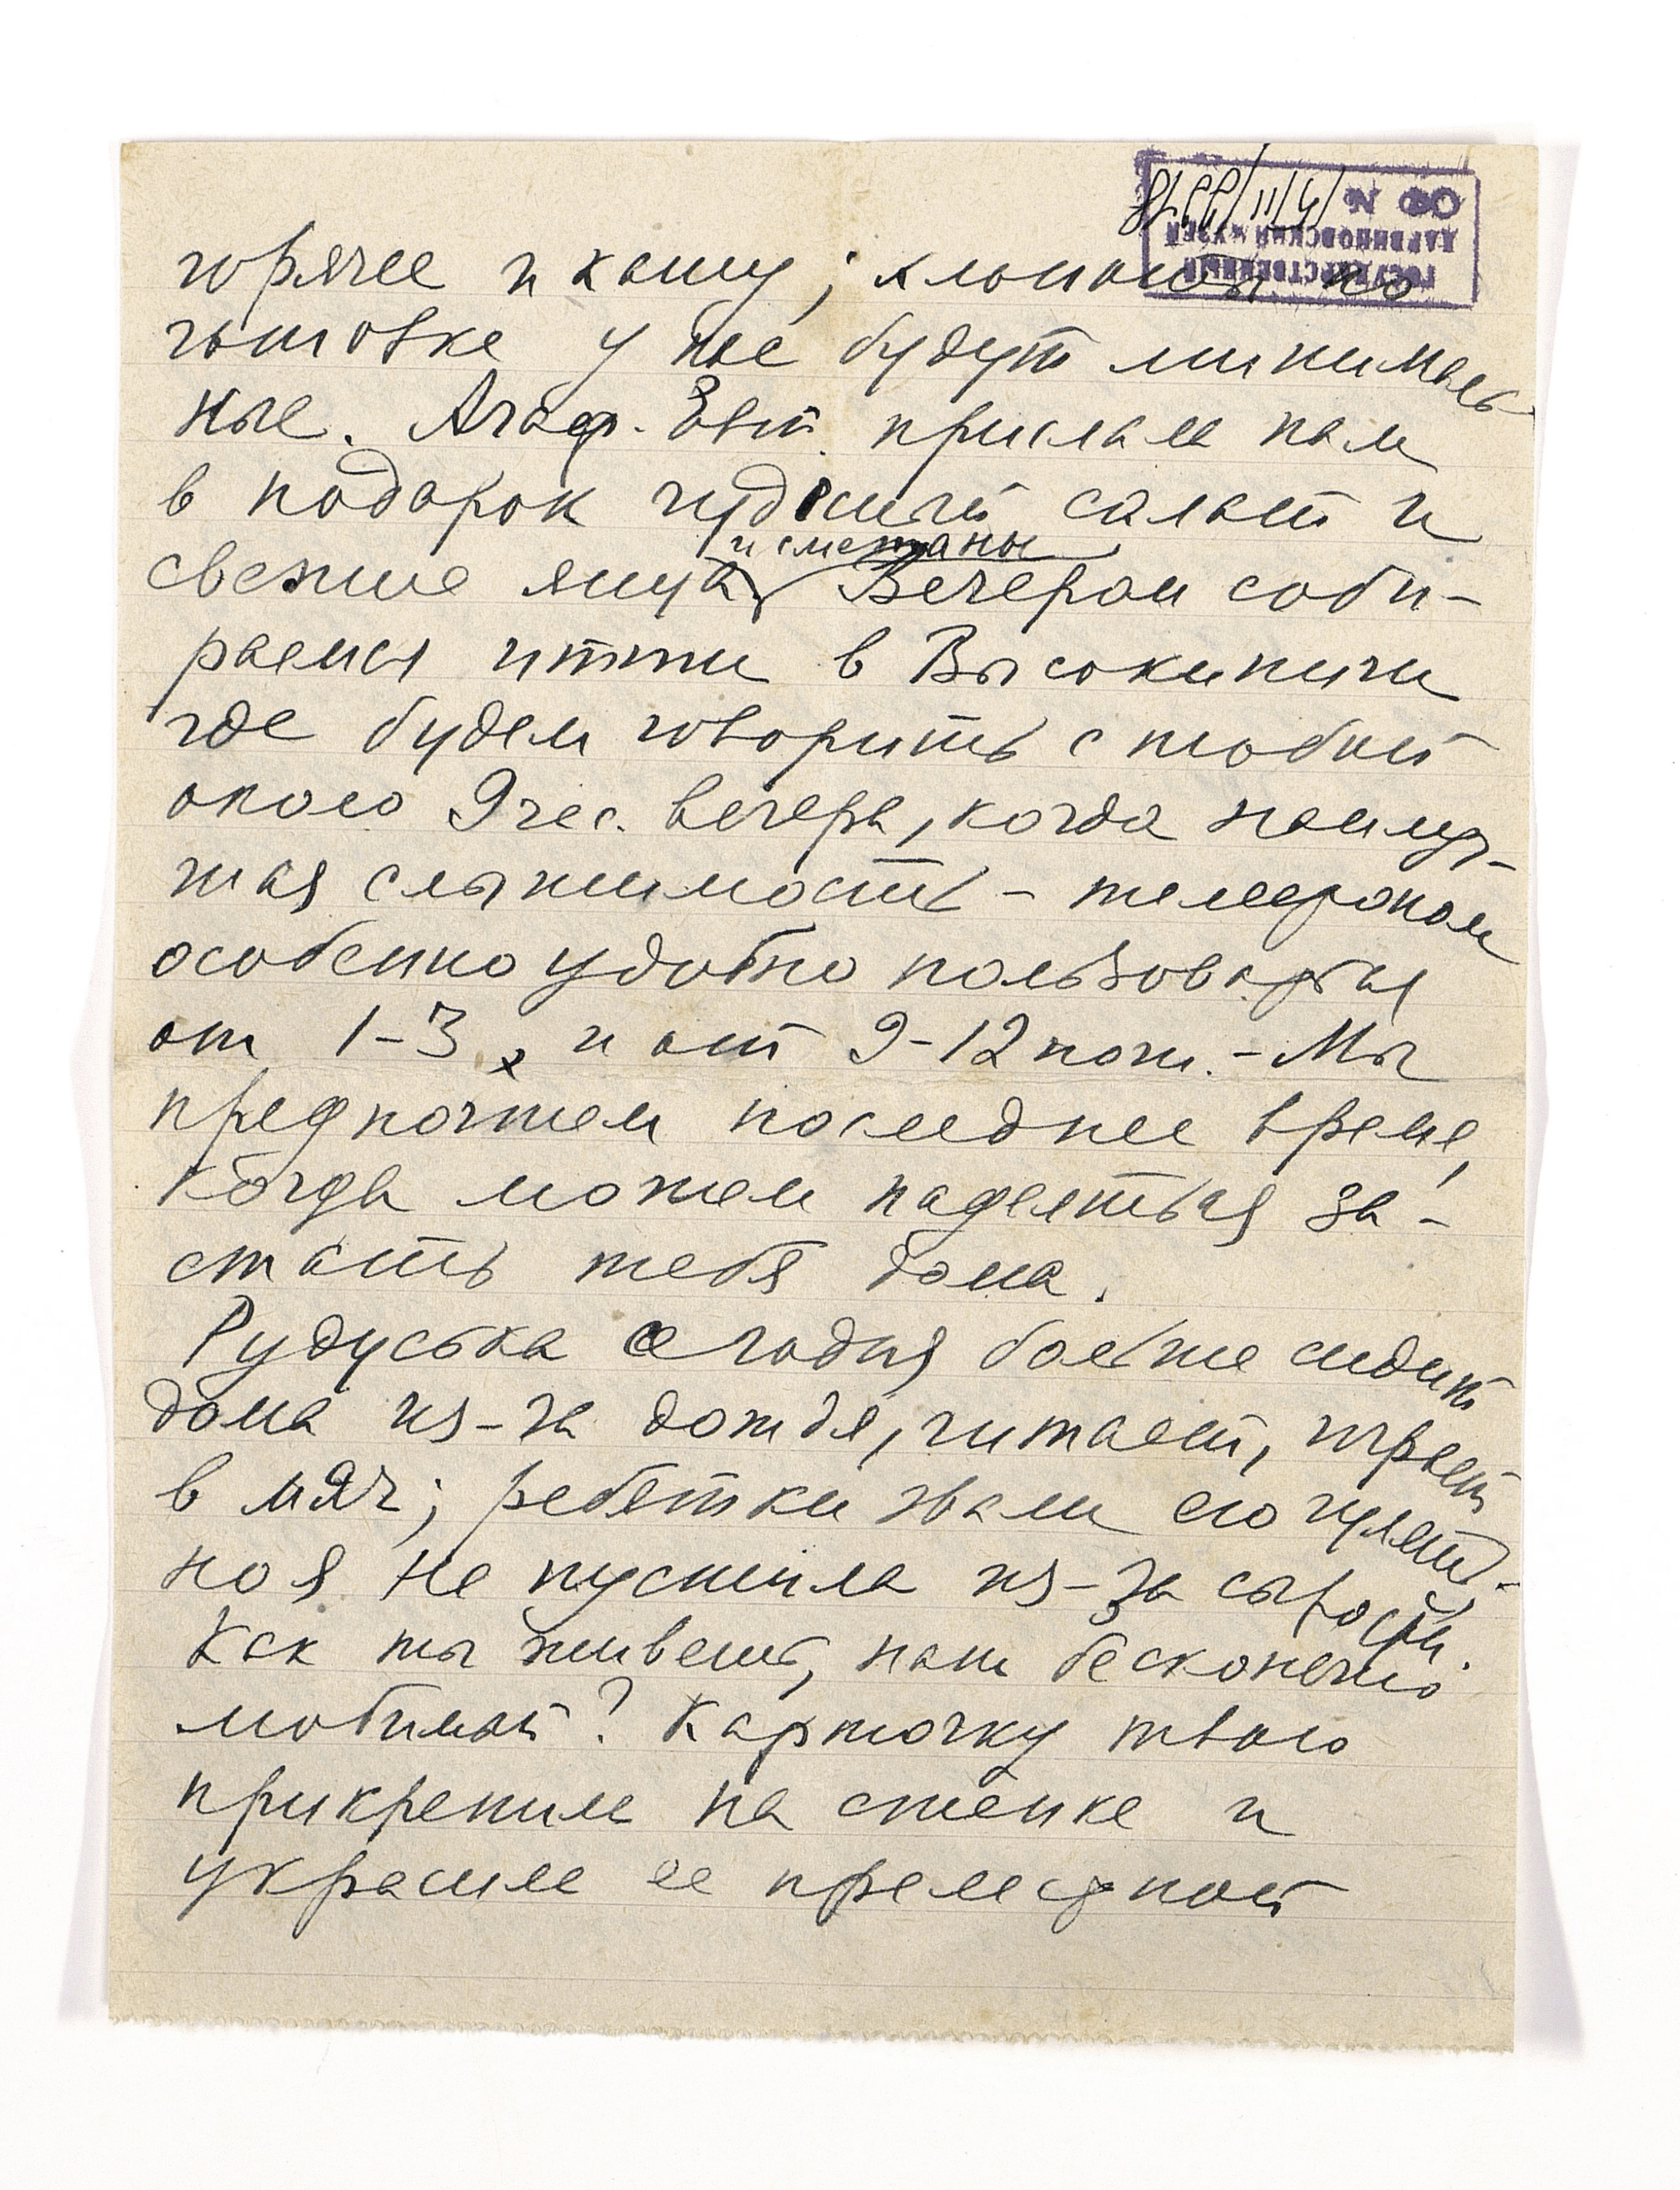 ГОСУДАРСТВЕННЫЙ
ДАРВИНОВСКИЙ МУЗЕЙ
ОФ №
горячее и кашу; хлопоты по
готовке у нас будут минималь-
ные. Агаф. Евт. прислала нам
в подарок чудный салат и
и сметаны
свежие яйца. Вечером соби-
раемся итти в Высокиничи
где будем говорить с тобой
около 9 час. вечера, когда наилуч-
шая слышимость - телефоном
особенно удобно пользоваться
от 1-3, и от 9-12 ноч. - Мы
предпочтем последнее время,
когда можем надеяться за-
стать тебя дома.
Рудуська сегодня больше сидит
дома из-за дождя, читает, играет
в мяч; ребятки звали его гулять -
но я не пустила из-за сырости.
Как ты живешь, наш бесконечно
любимый? Карточку твою
прикрепили на стенке и
украсили ее прелестной